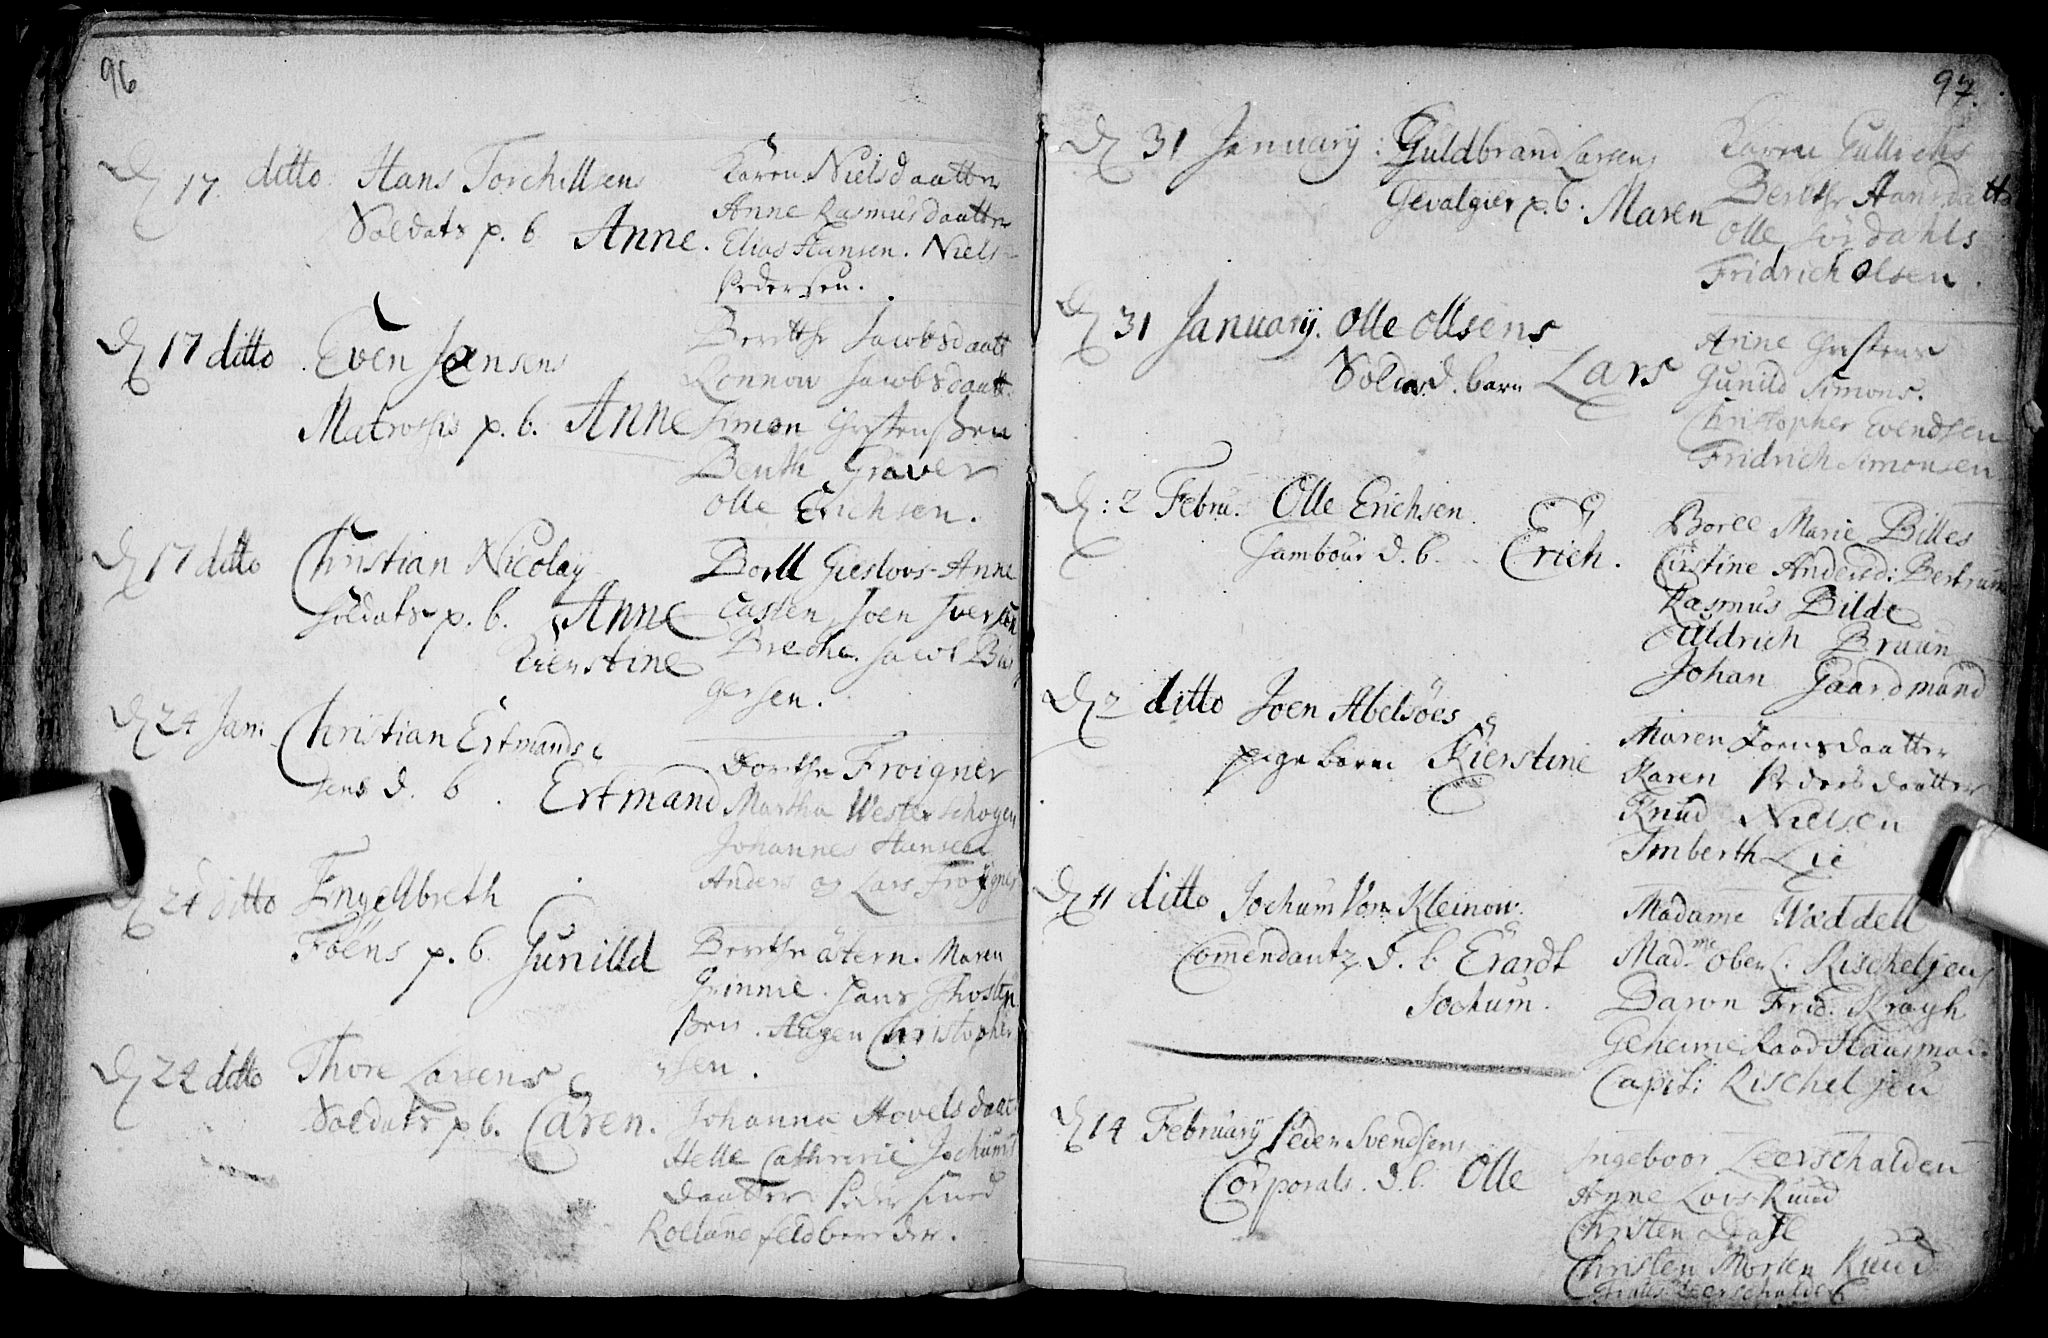 96
D 17 ditto Hans Torchillsens
Soldats p. b. Anne.
Karen Nielsdaatter
Anne Rasmusdaatter
Elias Hansen. Niels
Pedersen.
D 17 ditto Even Jensens
Matrosses p. b. Anne
Berthe Jacobsdaatt
Lonnow Jacobsdaatt.
Simon Christenssen
Benth Graver
Olle Erichsen.
D 17 ditto Christian Nicolay
Soldats p. b. Anne
Kierstine
Borll Gieslovs-Anne
Casten, Joen Iversen
Brecke. Jacob Bir
gersen.
D 24 Jan: Christian Ertmands
sens d. b. Ertmand
Dorthe Froigner
Martha Westerschogen
Johannes Hansen
Anders og Lars Froygner
D 24 ditto Engelbreth
Foëns p. b. Gunilld
Berthe Maren
Grinnie. Hans Thosten
sen. Aagen Christopher
sen.
D 24 ditto Thore Larsens
Soldats p b. Caren.
Johanna Hovelsdaat
Helle Cathrine Jochums
daatter Peder Smed
Roeland feldbereder.
97.
D 31 January: Guldbrand Larsens
Gevalgier p. b. Maren
Karen Gullichs
Berthe Hansdatt
Olle Sördahls
Fridrich Olsen.
D 31 January. Olle Ollsens
Soldas d. barn Lars
Anne Christens
Gunild Simons.
Christopher Evendsen
Fridrich Simonsen
D: 2 Febru. Olle Erichsen
Tambour d. b. Erich.
Borel Marie Billes
Cirstine Andersd: Bertrum
Rasmus Bilde
Uldrich Bruun
Johan Gaardmand
D 2 ditto Joen Abelsöes
pige barn Kierstine
Maren Joensdaatter
Karen Pedersdaatter
Knud Nielsen
Imberth Lie
D 11 ditto Jochum Von Kleinow.
Comendantz d. b. Erardt
Jochum.
Madame Waddell
Madme Ober L. Rischeljeu
Baron Frid. Kragh
Geheime Raad Hausman
Capit: Rischeljeu
D 14 February Peder Svendsens
Corporals d. b. Olle
Ingeboor Leerschalden
Anne Lovs Ruud
Christen Dahl
Christen Morten Ruud
Leerschalden